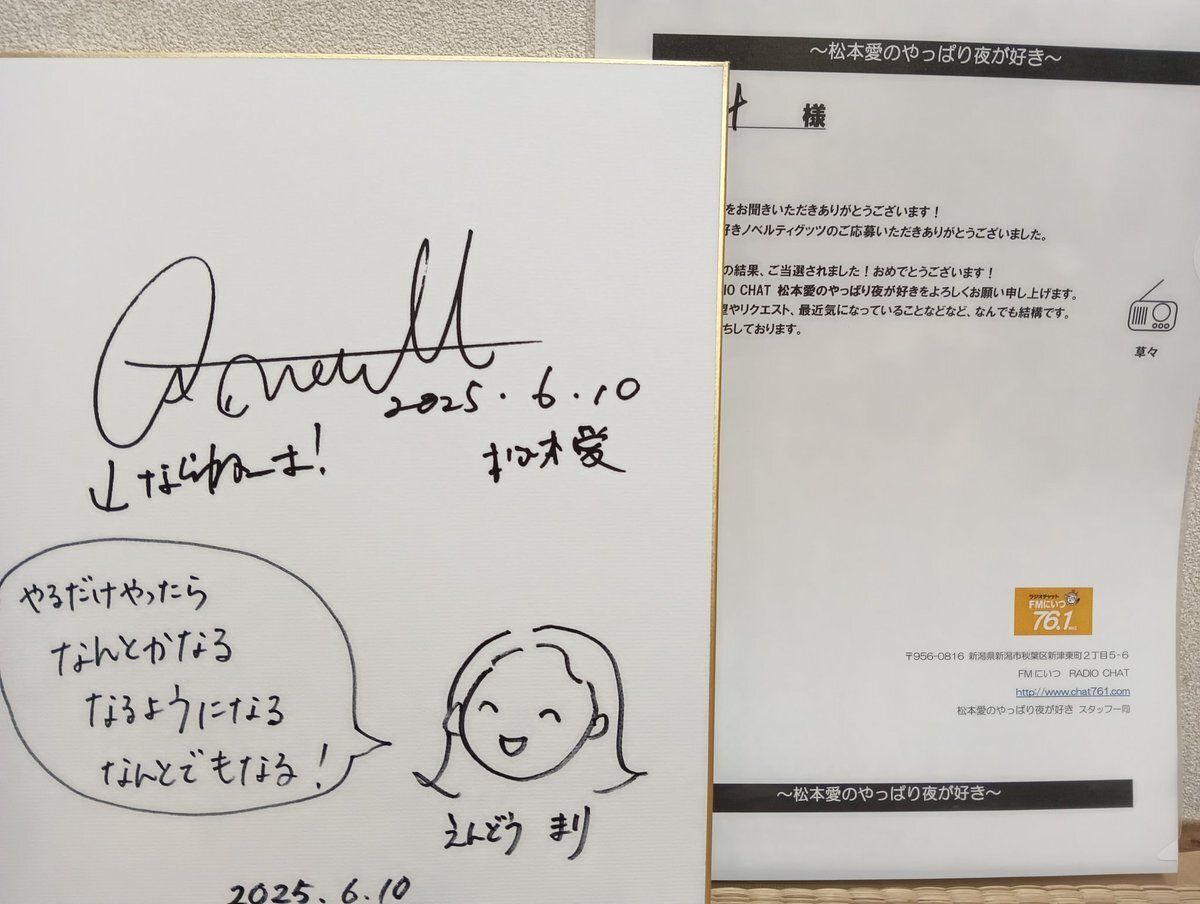 2025.6.10
松本愛
↓ならねーよ!
やるだけやったら
なんとかなる
なるようになる
なんとでもなる!
えんどう まり
2025.6.10
～松本愛のやっぱり夜が好き～
様
をお聞きいただきありがとうございます！
好きノベルティグッツのご応募いただきありがとうございました。
の結果、ご当選されました！おめでとうございます！
IO CHAT 松本愛のやっぱり夜が好きをよろしくお願い申し上げます。
望やリクエスト、最近気になっていることなどなど、なんでも結構です。
ちしております。
草々
ラジオチャット
FMにいつ
76.1
〒956-0816 新潟県新潟市秋葉区新津東町２丁目5-6
FMにいつ RADIO CHAT
http://www.chat761.com
松本愛のやっぱり夜が好き スタッフ一同
～松本愛のやっぱり夜が好き～